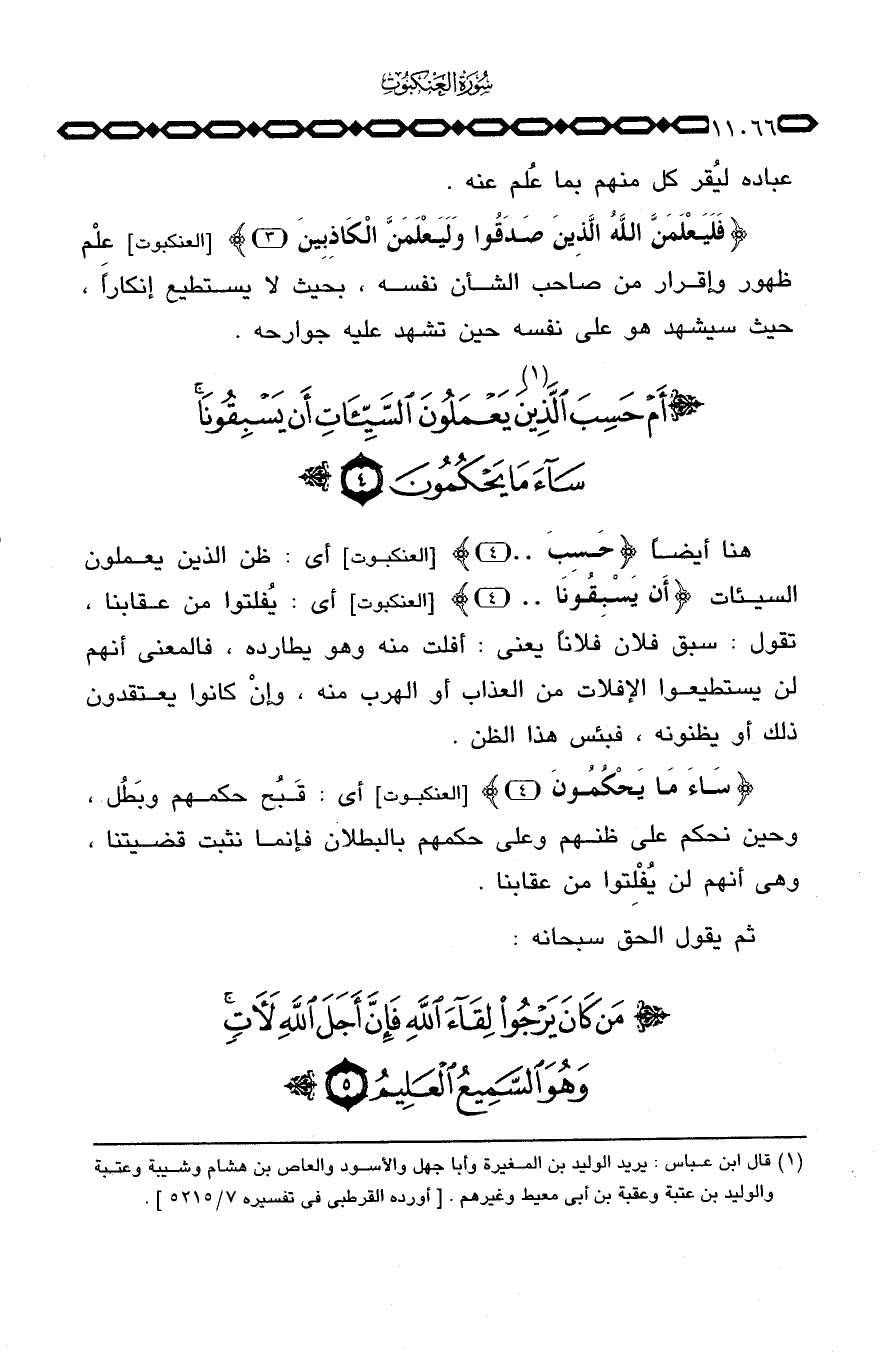 سُورَةُ العَنكَبُوتِ
١١٠٦٦
عباده ليُقر كل منهم بما عُلم عنه .
﴿ فَلَيَعْلَمَنَّ اللَّهُ الَّذِينَ صَدَقُوا وَلَيَعْلَمَنَّ الْكَاذِبِينَ (٣) ﴾ [العنكبوت] علْم
ظهور وإقـرار من صاحب الشـأن نفسـه ، بحيث لا يسـتطيع إنكاراً ،
حيث سيشهد هو على نفسه حين تشهد عليه جوارحه .
﴿ أَمْ حَسِبَ ٱلَّذِينَ (١) يَعْمَلُونَ ٱلسَّيِّـَٔاتِ أَن يَسْبِقُونَا ۚ
سَآءَ مَا يَحْكُمُونَ ٤ ﴾
هنا أيضـاً ﴿ حَسِبَ .. (٤) ﴾ [العنكبوت] أى : ظن الذين يعـملون
السيـئات ﴿ أَن يَسْبِقُونَا .. (٤) ﴾ [العنكبوت] أى : يُفلتوا من عـقابنا ،
تقول : سبق فلان فلاناً يعنى : أفلت منه وهو يطارده ، فالمعنى أنهم
لن يستطيعـوا الإفلات من العذاب أو الهرب منه ، وإنْ كانوا يعـتقدون
ذلك أو يظنونه ، فبئس هذا الظن .
﴿ سَاءَ مَا يَحْكُمُونَ (٤) ﴾ [العنكبـوت] أى : قَـبُح حكمـهم وبَطُل ،
وحين نحكم على ظنـهم وعلى حكمهم بالبطلان فإنمـا نثبت قضـيتنا ،
وهى أنهم لن يُفْلتوا من عقابنا .
ثم يقول الحق سبحانه :
﴿ مَن كَانَ يَرْجُوا۟ لِقَآءَ ٱللَّهِ فَإِنَّ أَجَلَ ٱللَّهِ لَأٓتٍ ۚ
وَهُوَ ٱلسَّمِيعُ ٱلْعَلِيمُ ٥ ﴾
(١) قال ابن عـباس : يريد الوليد بن المـغيرة وأبا جهل والأسـود والعاص بن هشام وشـيبة وعتـبة
والوليد بن عتبة وعقبة بن أبى معيط وغيرهم . [ أورده القرطبى فى تفسيره ٥٢١٥/٧ ] .